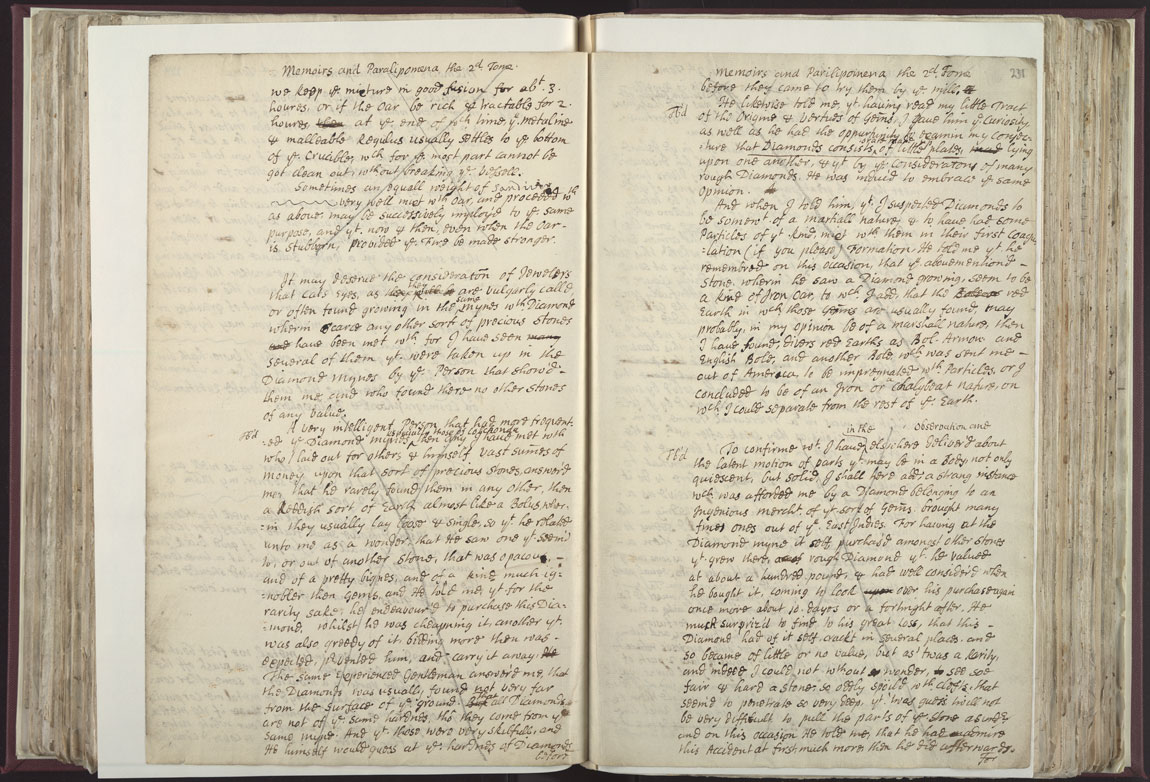 Memoirs and Paralipomena the 2d Tome.
we keep ye mixture in good fusion for abt. 3.
houres, or if the Oar be rich & tractable for 2
houres at ye end of wch time ye metaline
& malleable Regulus usually settles to ye bottom
of ye Crucible, wch for ye most part cannot be
got clean out without breaking ye Vessell.
Sometimes an equall weight of
very well mixt wth Oar, and proceeded wth
as above may be successively imploy'd to ye same
purpose, and yt. now & then, even when the Oar
is stubborn, provided ye Fire be made stronger.
It may deserve the consideration of Jewelers
that Cats Eyes, as they are vulgarly call'd
or often found growing in the same Mynes wth Diamond
wherin scarce any other sort of precious stones
have been met wth for I have seen
severall of them yt. were taken up in the
Diamond Mynes by ye. Person that show'd
them me, and who found there no other Stones
of any value.
A very intelligent Person that had more frequent
:ed ye Diamond mynes especially those of then any I have met with
who laid out for others & himself vast summes of
money upon that sort of precious stones, answer'd
me, that he rarely found them in any other, then
a Reddish sort of Earth almost like a Bolus, wher
:in they usually lay loose & single, so yt he related
unto me as a wonder, that He saw one yt seem'd
to, or out of another Stone, that was opacous,
and of a pretty bignes, and of a kind much ig
:nobler then Gems, and He told me, yt for the
rarity sake, he endeavour'd to purchase this Dia
:mond, whilst he was cheapning it, another yt.
was also greedy of it, bidding more then was
expected, prevented him, and carry'd it away.
The same Experienced Gentleman answer'd me, that
the Diamonds was usually found not very far
from the surface of ye ground that all Diamonds
are not of ye. same hardnes, tho they come from ye
same myne. And yt those were very skilfull, and
He himself would guess at ye. hardnes of Diamonds
before
Memoirs and Parilipomena the 2d Tome
231
before they came to try them by ye mills.
He likewise told me, yt having read my little Tract
of the Origine & Vertues of Gems, I gave him ye Curiosity
as well as he had the opportunity to examin my Conjec
:ture that Diamonds consists of little plates, lying
upon one another, & yt by ye Consideratons of many
rough Diamonds, He was induc'd to embrace ye same
Opinion.
And when I told him, yt. I suspected Diamonds to
be somewt of a martiall nature, & to have had some
Particles of yt. kind, mixt wth them in their first Coagu
:lation (if you please) Formation. He told me yt he
remembred on this occasion, that ye abovemention'd
Stone, wherin he saw a Diamond growing, seem to be
a kind of Iron Oar, to wch I add, that the red
Earth in wch those Gems are usually found, may
probably, in my opinion be of a marshall nature, then
I have found, divers red Earths as Bol-Armon and
English Bole, and another Bole wch was sent me
out of America, to be impregnated wth Particles, or I
concluded to be of an Iron or Chalybeat nature, on
wch I could separate from the rest of ye Earth.
in the observation and
To confirme wt. I have elsewhere deliver'd about
the latent motion of parts yt may be in a Body not only
quiescent, but solid, I shall here add a strang instance
wch was afforded me by a Diamond belonging to an
Ingenious mercht. of yt sort of Gems, brought many
fine ones out of ye. East Indies. For having at the
Diamond myne it self, purchas'd amongst other stones
yt grew there, a rough Diamond yt. he valued
at about a hundred pound, & had well consider'd when
he bought it, coming to look over his purchase again
once more about 10. dayes or a fortnight after. He
much surpriz'd to find to his great loss, that this
Diamond had of it self crackt in severall places, and
so became of little or no value, but as 'twas a Rarity,
and indeed I could not wthout wonder, see soe
fair & hard a stone so oddly spoil'd wth clefts, that
seem'd to penetrate so very deep, yt 'twas guess'd will not
be very difficult to pull the parts of ye stone asunder
and on this occasion He told me, that he had admire
this Accident at first much more then he did afterwards.
For